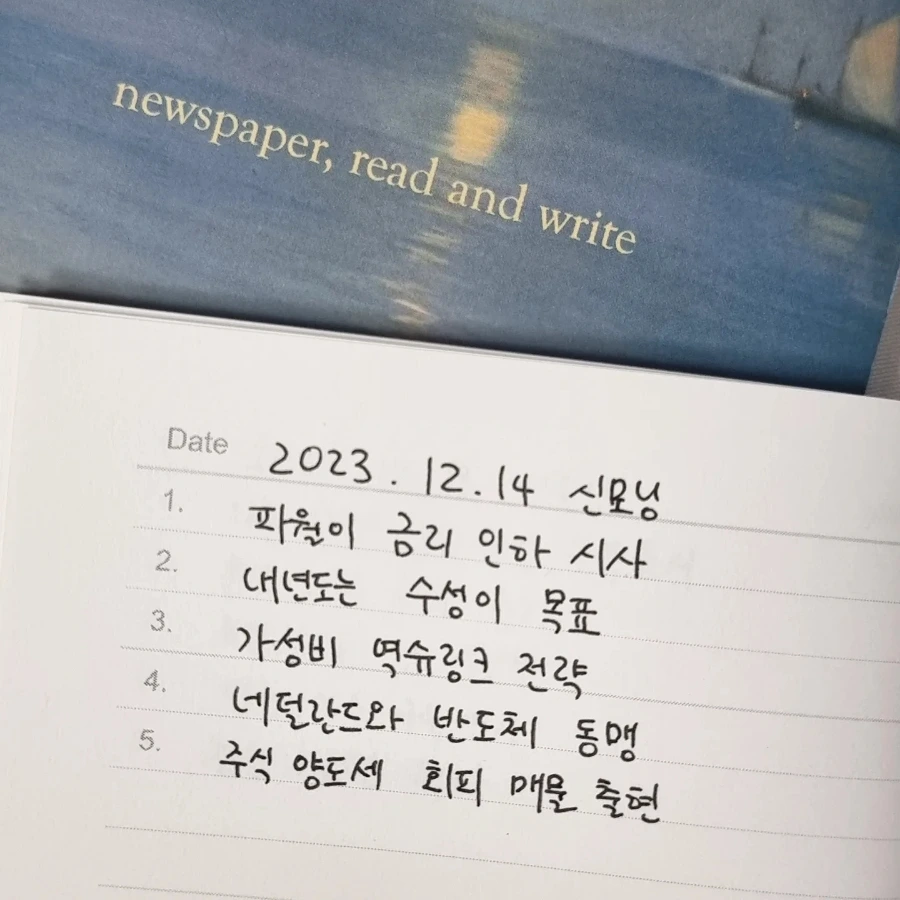 newspaper, read and write
Date 2023.12.14 신모닝
1. 파월이 금리 인하 시사
2. 내년도는 수성이 목표
3. 가성비 역슈링크 전략
4. 네덜란드와 반도체 동맹
5. 주식 양도세 회피 매물 출현